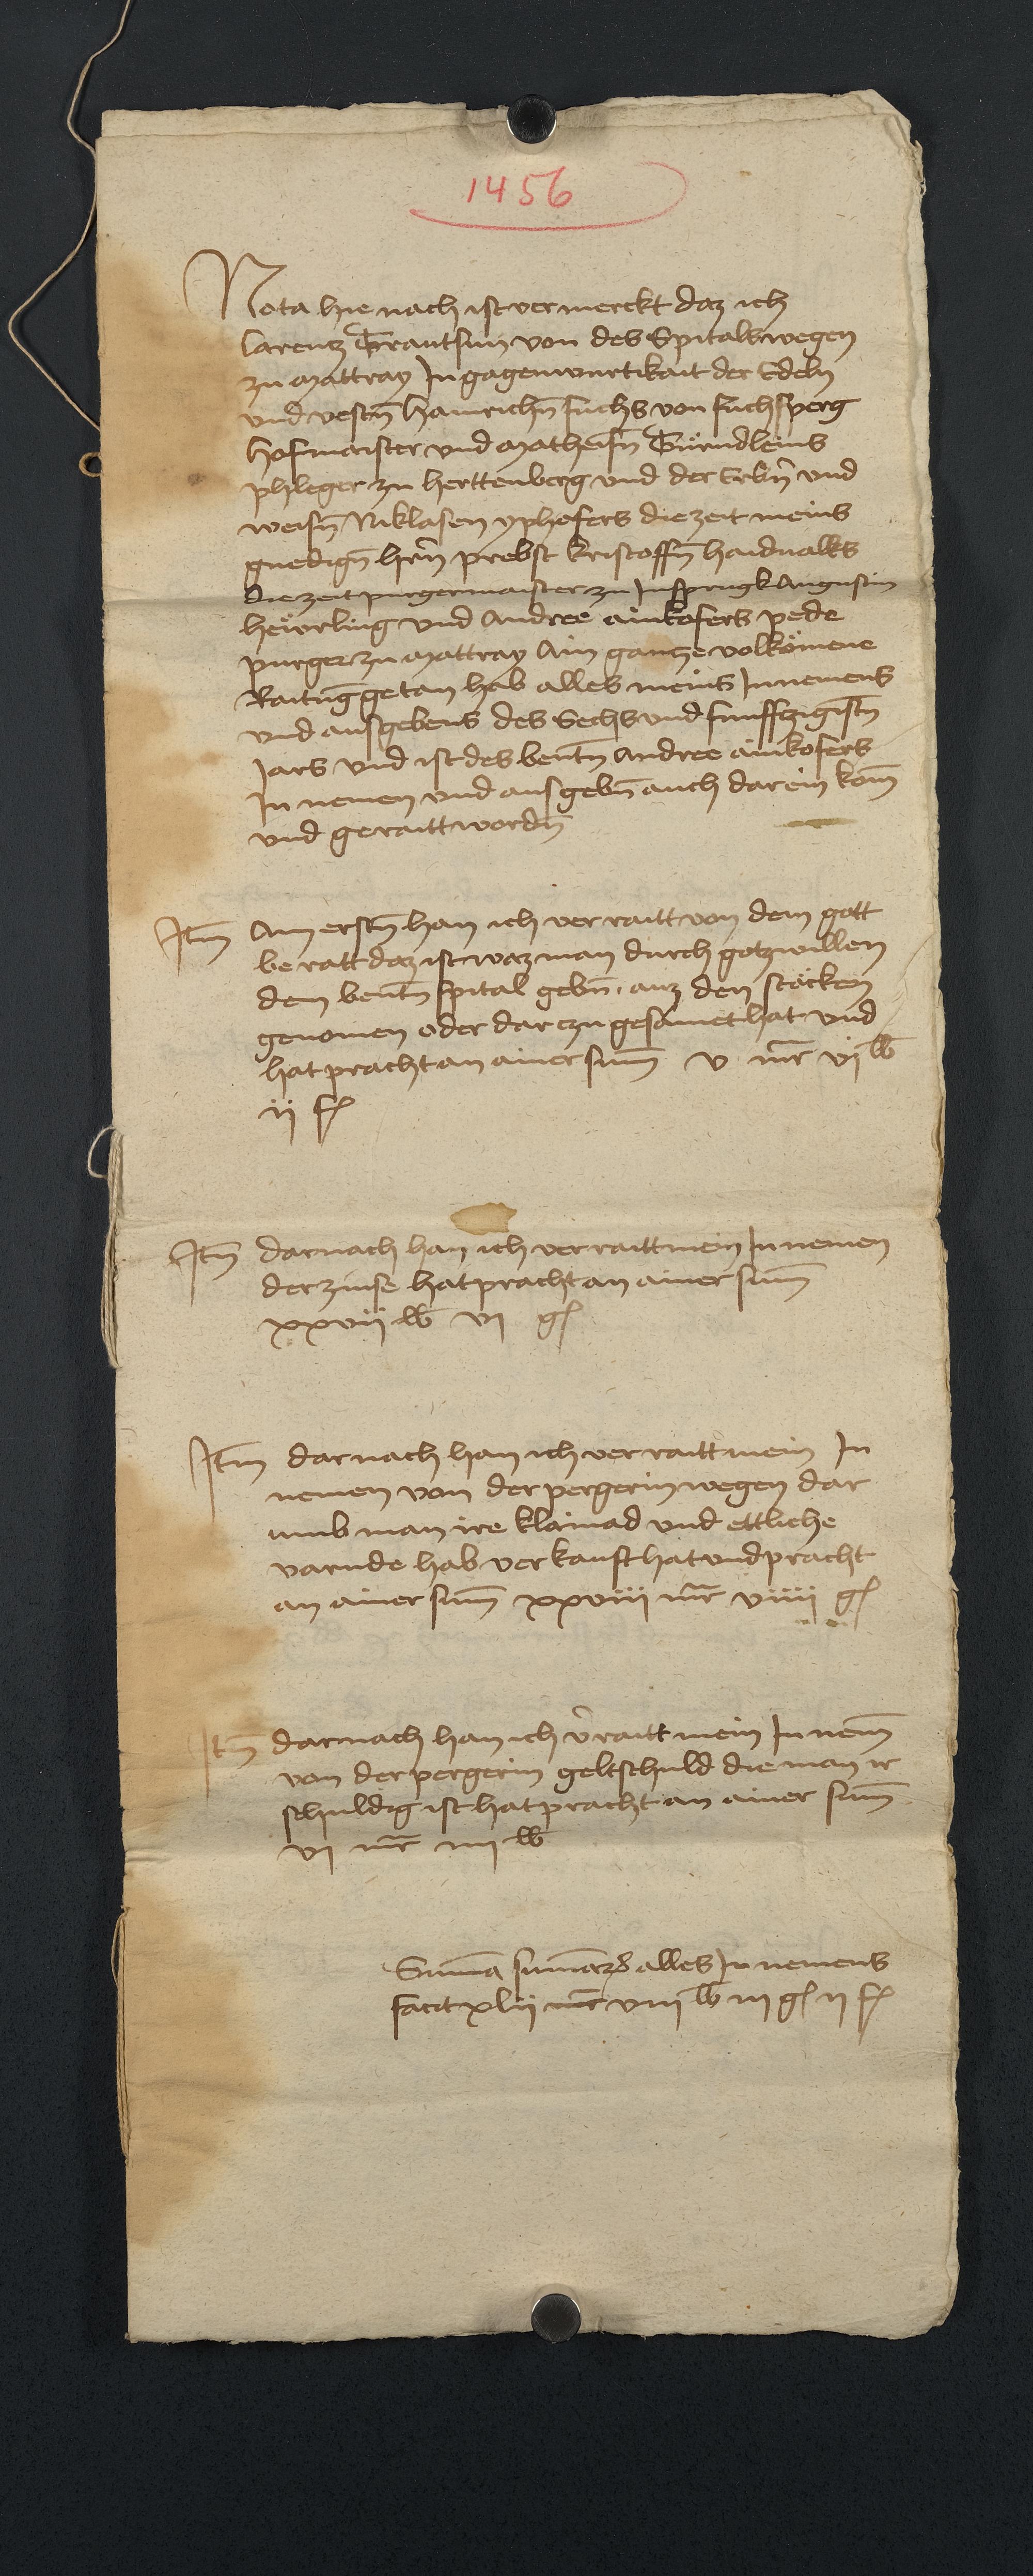 1456
Nota hie nach ist vermerckt daz ich
Larentz Trautsun von des Spitals wegen
zu Mattray In gagenwurtikait der Edeln
und vestn̄ Hainrichn̄ fuchs von fuchsperg
Hofmaister und Matheisn̄ Türndleins
phleger zu herttenberg und der Erbn̄ und
weisn̄ Niklasen yphofers die zeit meins
gnedign̄ hrn̄ prebst Cristoffn̄ haidualks
die zeit purgermaister zu Insprugk Augustin
heürling und Andree ainkofers pede
purger zu Mattray Ain gantze volkömene
Raitūg getan hab alles meins Innemens
und ausgebens des Sechs und funffczigistn̄
Jars und ist des bentn̄ Andree ainkofers
In nemen und ausgebn̄ auch darein kom̄
und geraitt wordn̄
Itm̄ Am erstn̄ han ich verraitt von dem gott
beratt daz ist waz man durch gotz willen
dem bentn̄ spital gebn̄, auz den stöcken
genomen oder darczu gesāmet hat und
hat pracht an ainer sum̄ v mr̄ vj lb
ij f
Itm̄ darnach han ich verraitt mein Innemen
der zinse hat pracht an ainer sum̄
xxvij lb vi g
Itm darnach han ich verraitt mein In
nemen von der pergerin wegen dar
umb man ire klainad und ettliche
varnde hab verkauft hat und pracht
an ainer sum̄ xxviii mr̄ viiii g
Itm̄ darnach han ich v̄raitt mein Innem̄
von der pergerin geltschuld die man ir
schuldig ist hat pracht an ainer sum̄
vi mr̄ iiii lb
Sum̄a sum̄arz alles Innemens
facit xlii mr̄ viii lb iii g ii f